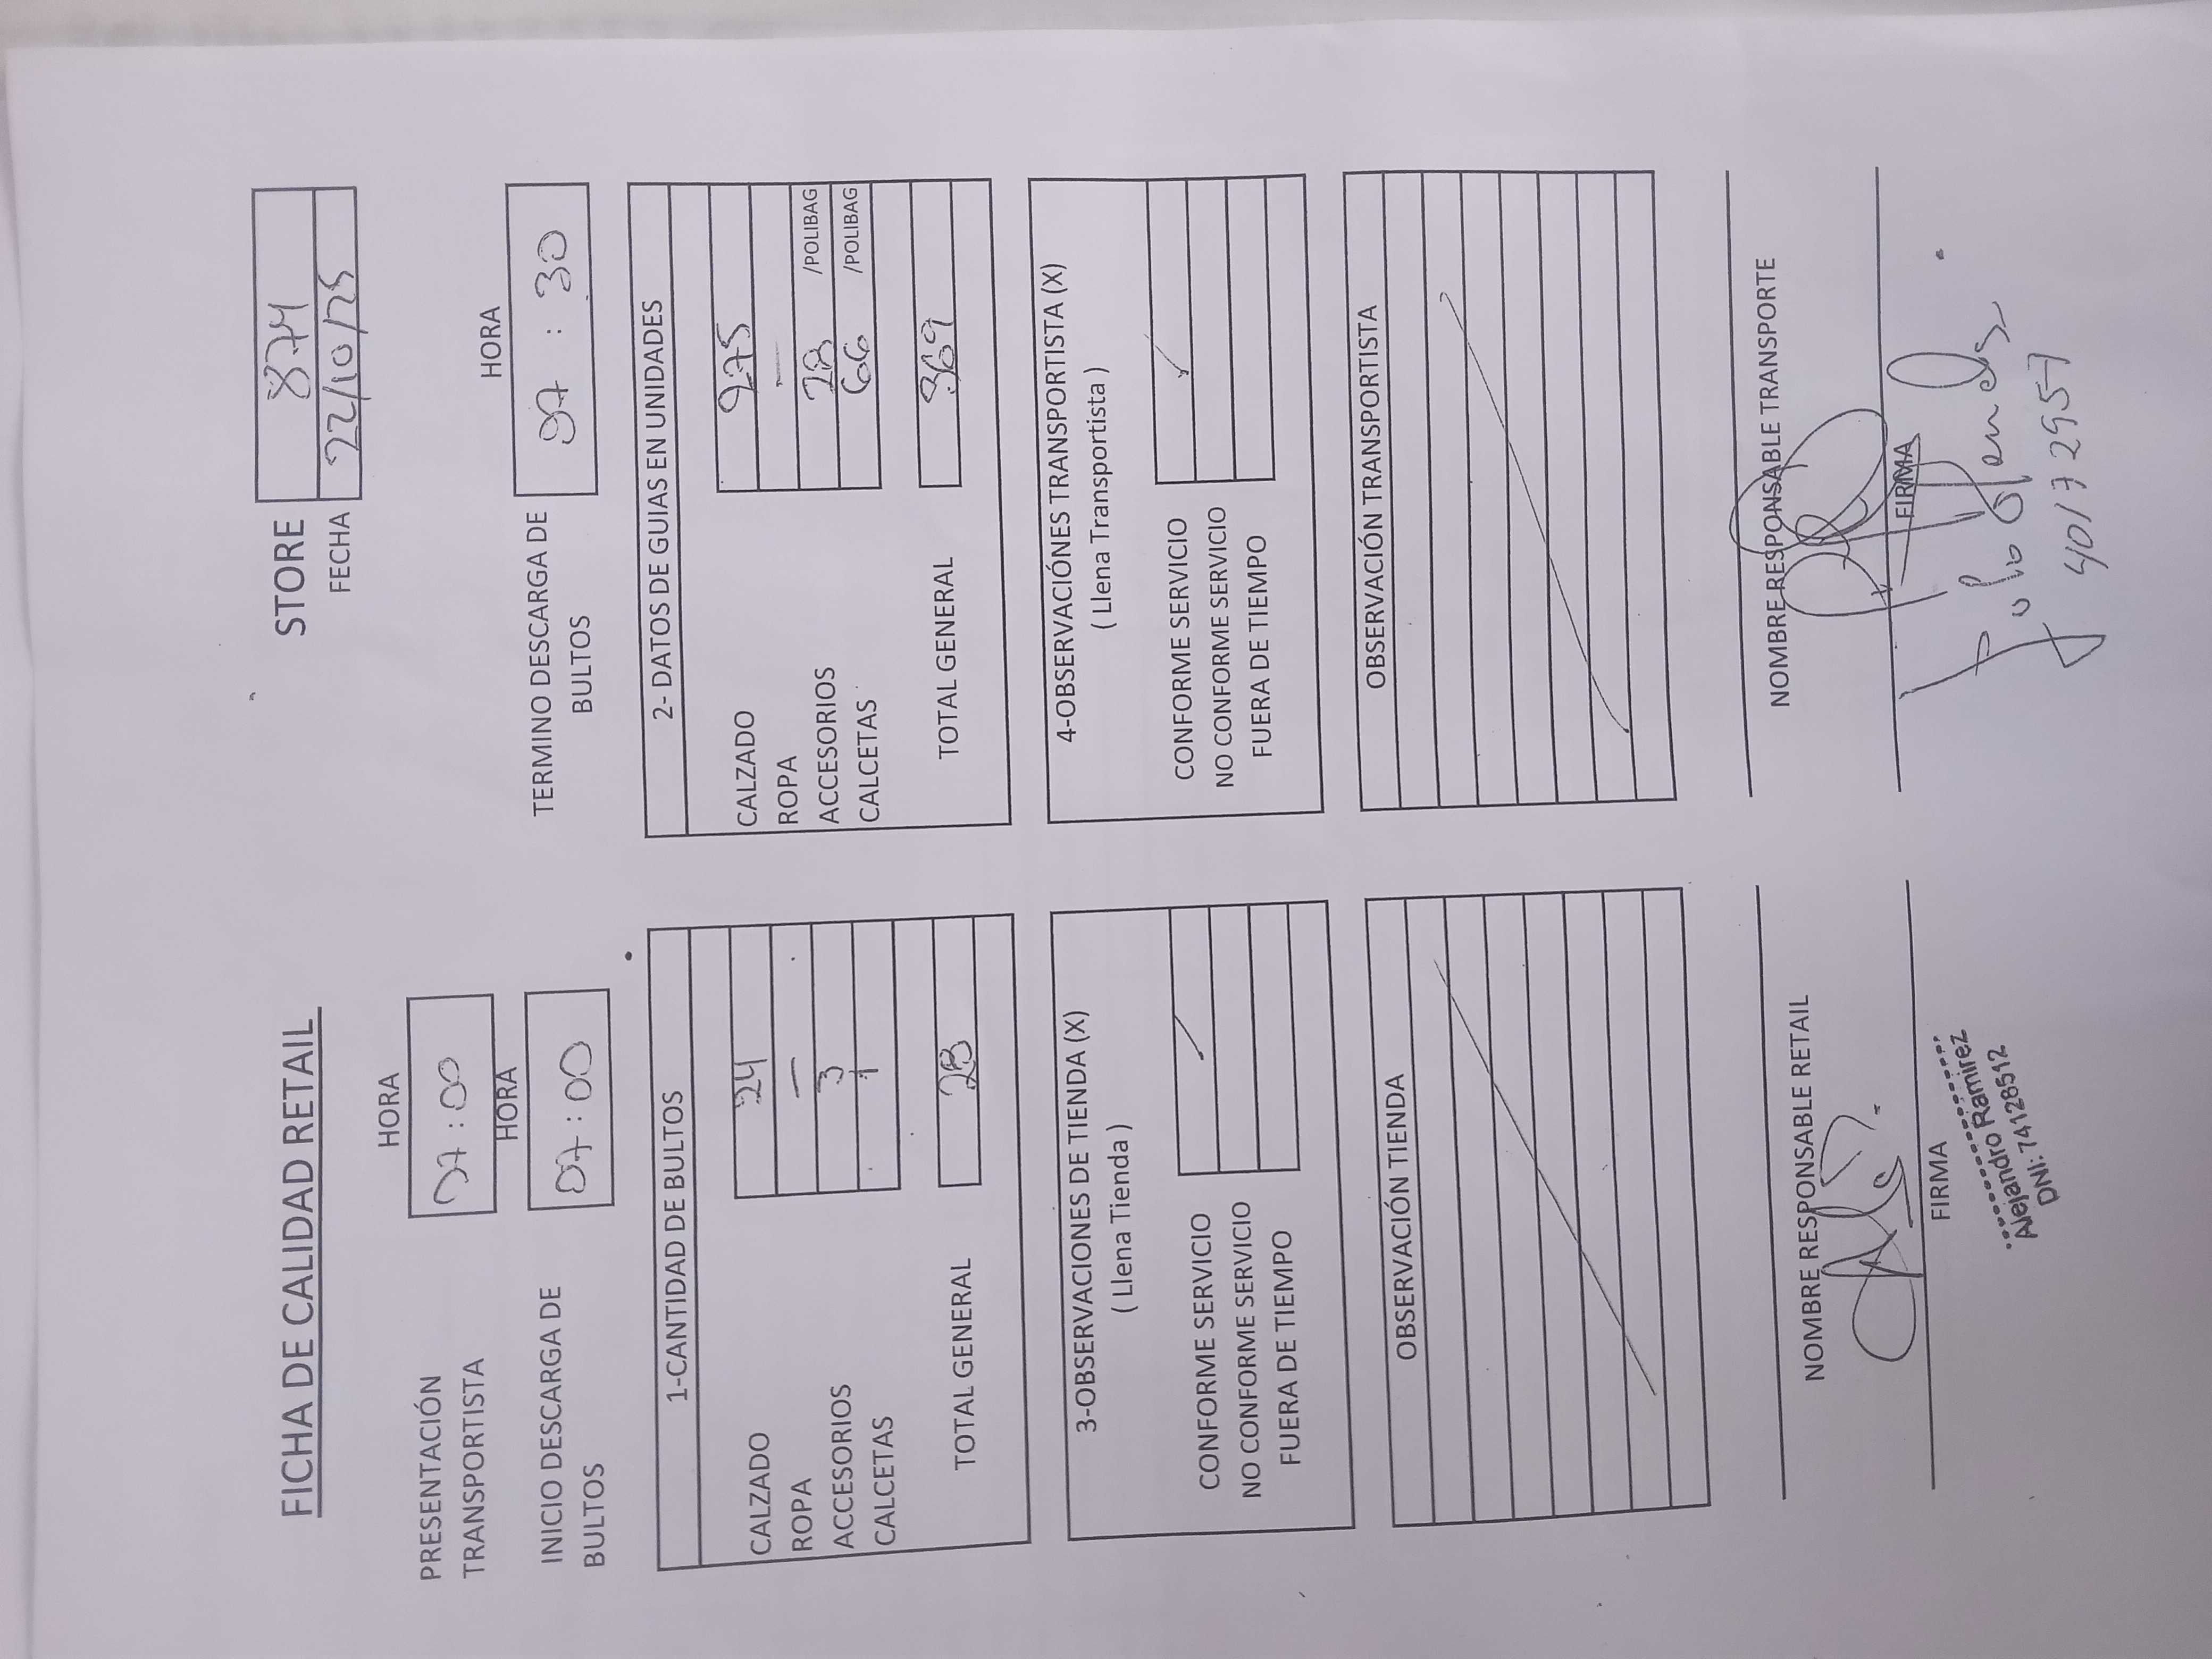 FICHA DE CALIDAD RETAIL
STORE 874
FECHA 22/10/25
HORA
PRESENTACIÓN TRANSPORTISTA 07:00
HORA
INICIO DESCARGA DE BULTOS 07:00
HORA
TERMINO DESCARGA DE BULTOS 07:30
1-CANTIDAD DE BULTOS
CALZADO 24
ROPA —
ACCESORIOS 3
CALCETAS 1
TOTAL GENERAL 28
2- DATOS DE GUIAS EN UNIDADES
CALZADO 275
ROPA —
ACCESORIOS 28 /POLIBAG
CALCETAS 66 /POLIBAG
TOTAL GENERAL 369
3-OBSERVACIONES DE TIENDA (X)
( Llena Tienda )
CONFORME SERVICIO ✓
NO CONFORME SERVICIO
FUERA DE TIEMPO
4-OBSERVACIÓNES TRANSPORTISTA (X)
( Llena Transportista )
CONFORME SERVICIO ✓
NO CONFORME SERVICIO
FUERA DE TIEMPO
OBSERVACIÓN TIENDA
OBSERVACIÓN TRANSPORTISTA
NOMBRE RESPONSABLE RETAIL
FIRMA
Alejandro Ramirez
DNI: 74128512
NOMBRE RESPONSABLE TRANSPORTE
FIRMA
Julio
40172957